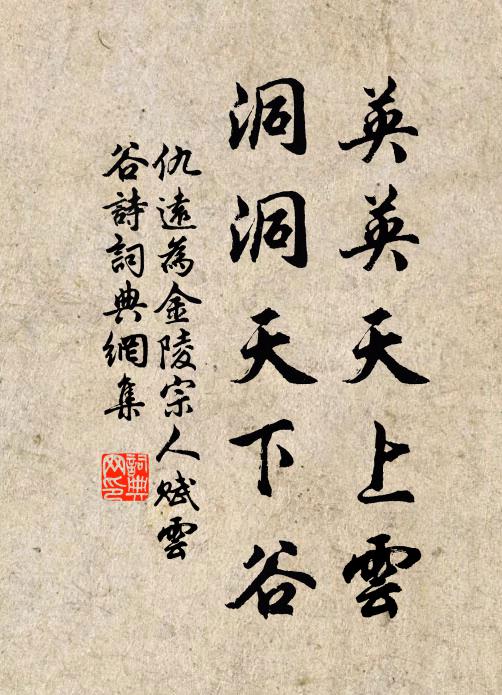 英英天上雲
洞洞天下谷
仇遠為金陵宗人賦雲
谷詩詞典網集
詞典网印